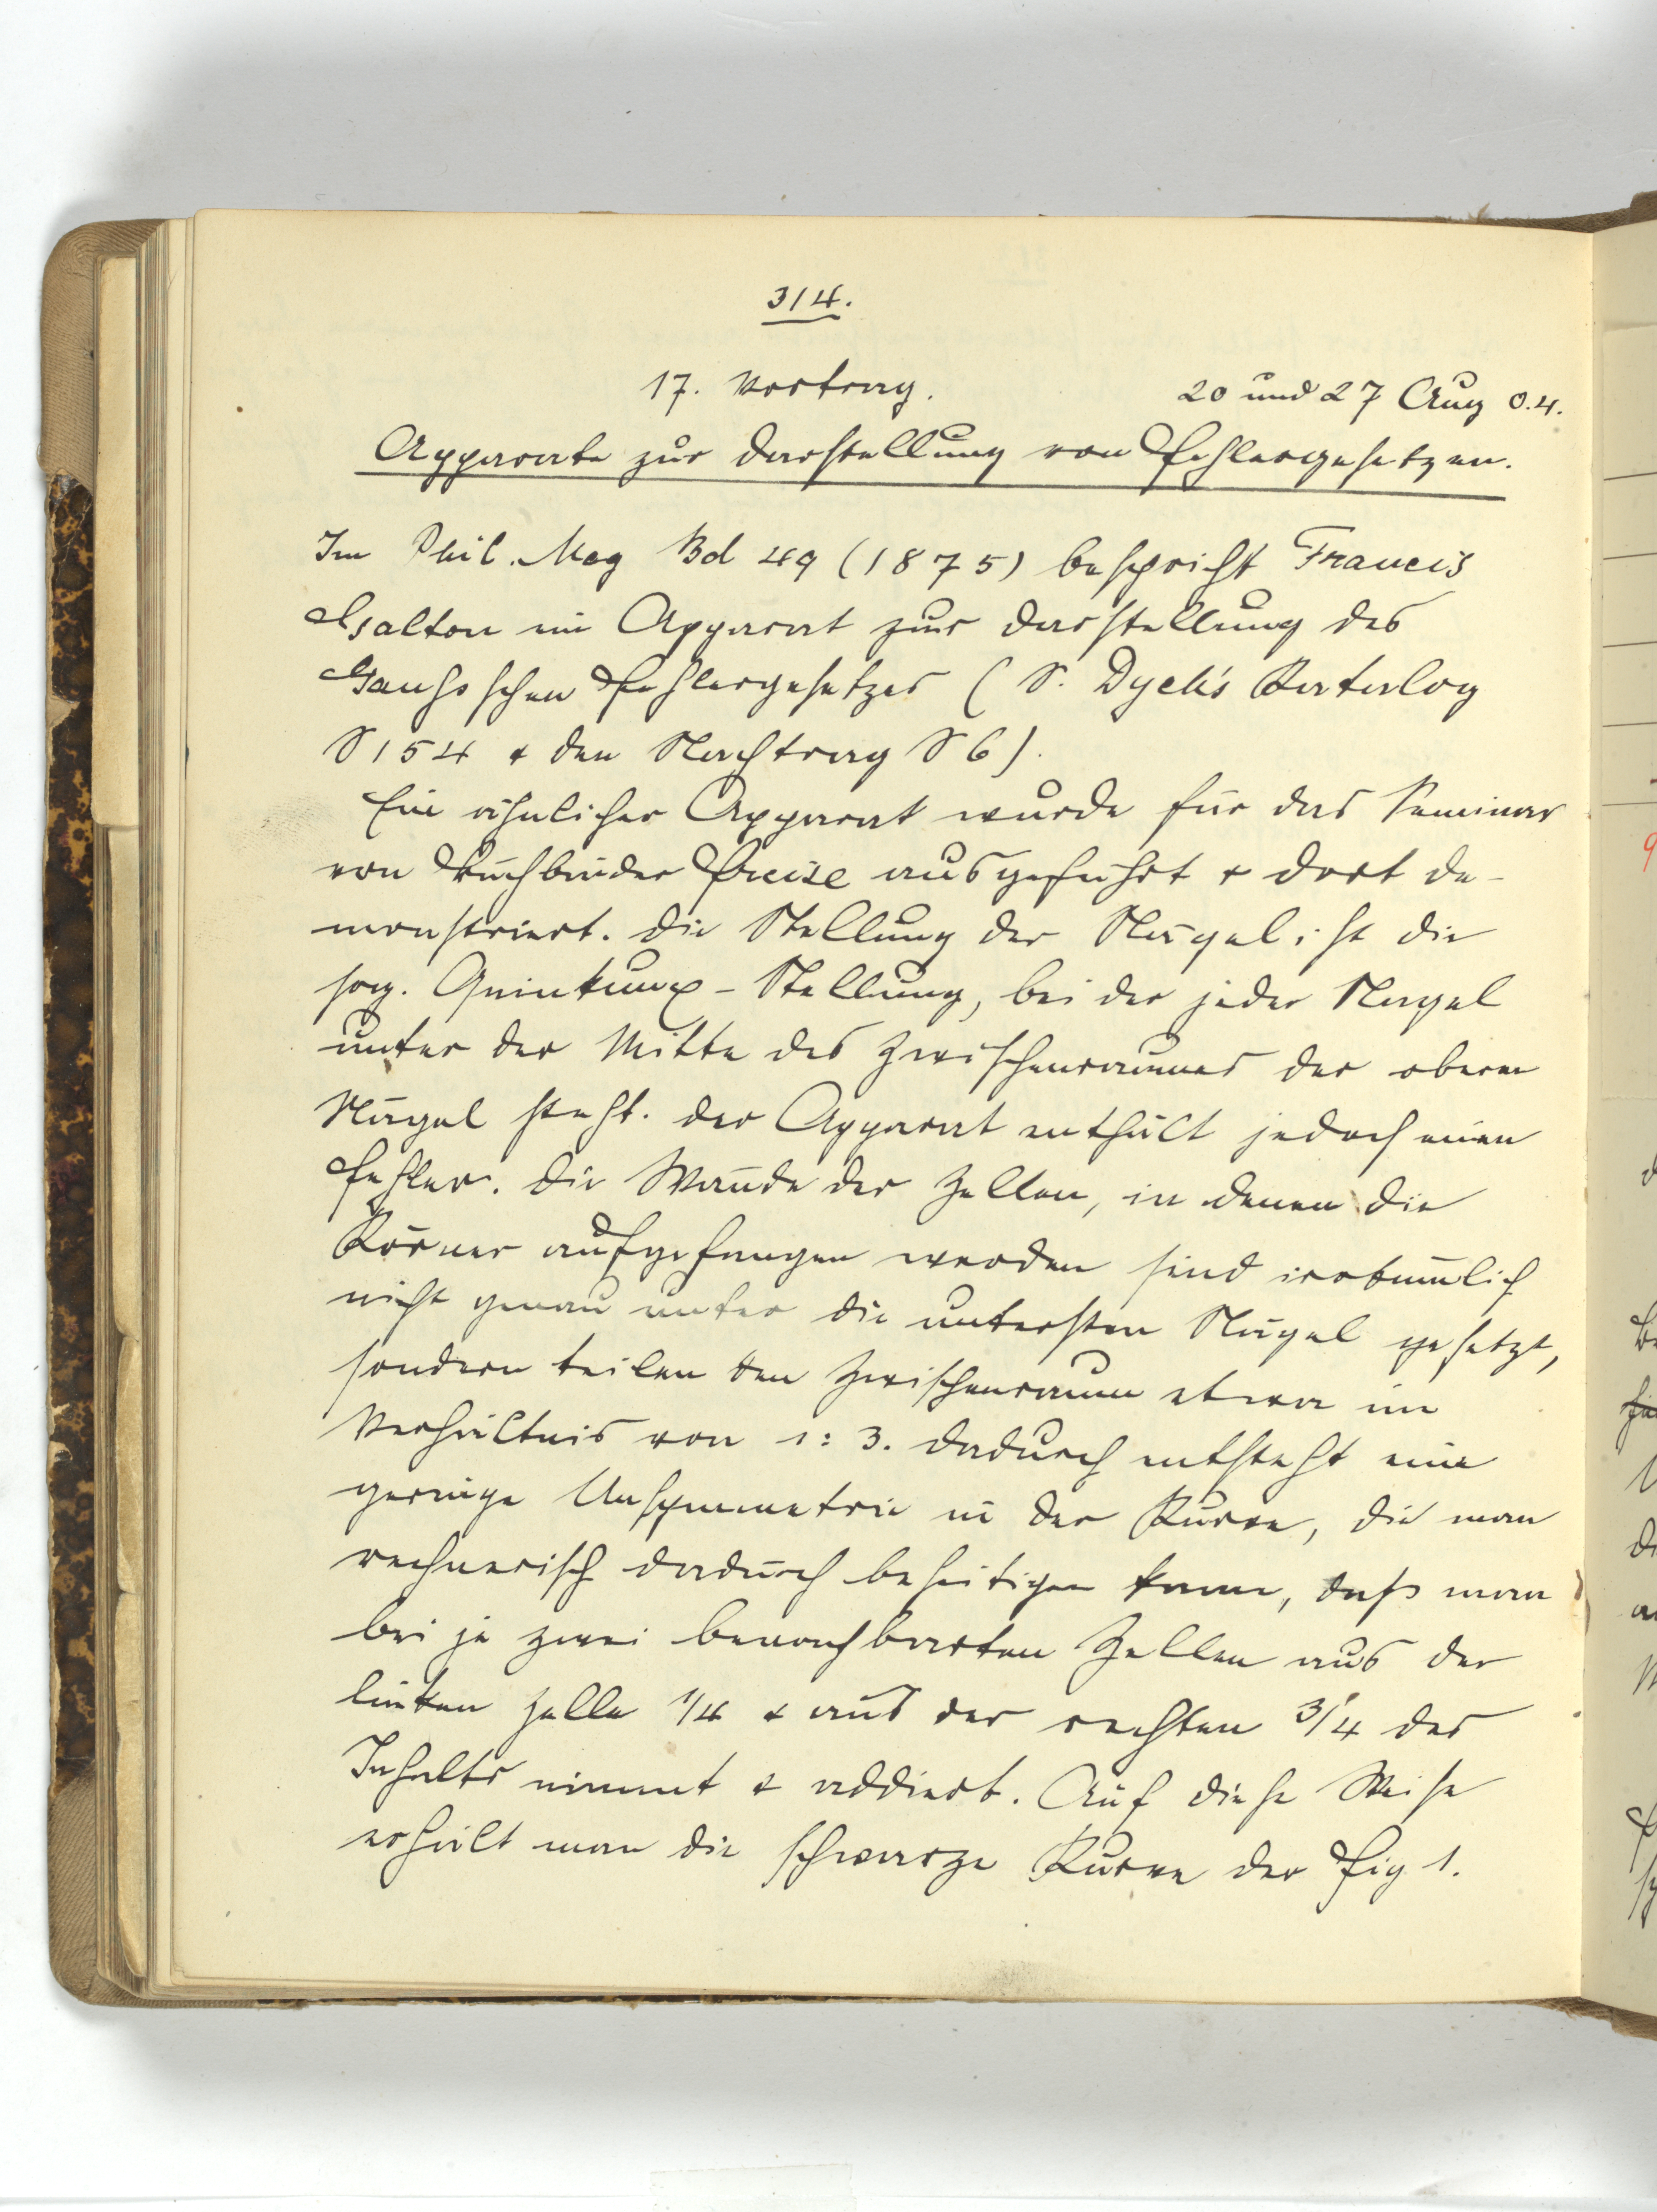 314.
17. Vortrag. 20 und 27 Aug 0.4.
Apparate zur Darstellung von Fehlergesetzen.
Im Phil. Mag Bd 49 (1875) bespricht Francis
Galton ein Apparat zur Darstellung des
Gaußsschen Fehlergesetzes (S. Dyck's Katalog
S 154 & den Nachtrag S 6).
Ein ähnlicher Apparat wurde für das Seminar
von Buchbinder ausgeführt & dort de-
monstriert. Die Stellung der Nägel ist die
sog. Quinkunx-Stellung, bei der jeder Nagel
unter der Mitte des Zwischenraumes der oberen
Nägel steht. Der Apparat enthält jedoch einen
Fehler. Die Wände der Zellen, in denen die
Körner aufgefangen werden sind irrtümlich
nicht genau unter die untersten Nägel gesetzt,
sondern teilen den Zwischenraum etwa im
Verhältnis von 1:3. Dadurch entsteht eine
geringe Unsymmetrie in der Kurve, die man
rechnerisch dadurch beseitigen kann, daß man
bei je zwei benachbarten Zellen aus der
linken Zelle 1/4 & aus der rechten 3/4 des
Inhalts nimmt & addiert. Auf diese Weise
erhält man die schwarze Kurve der Fig 1.